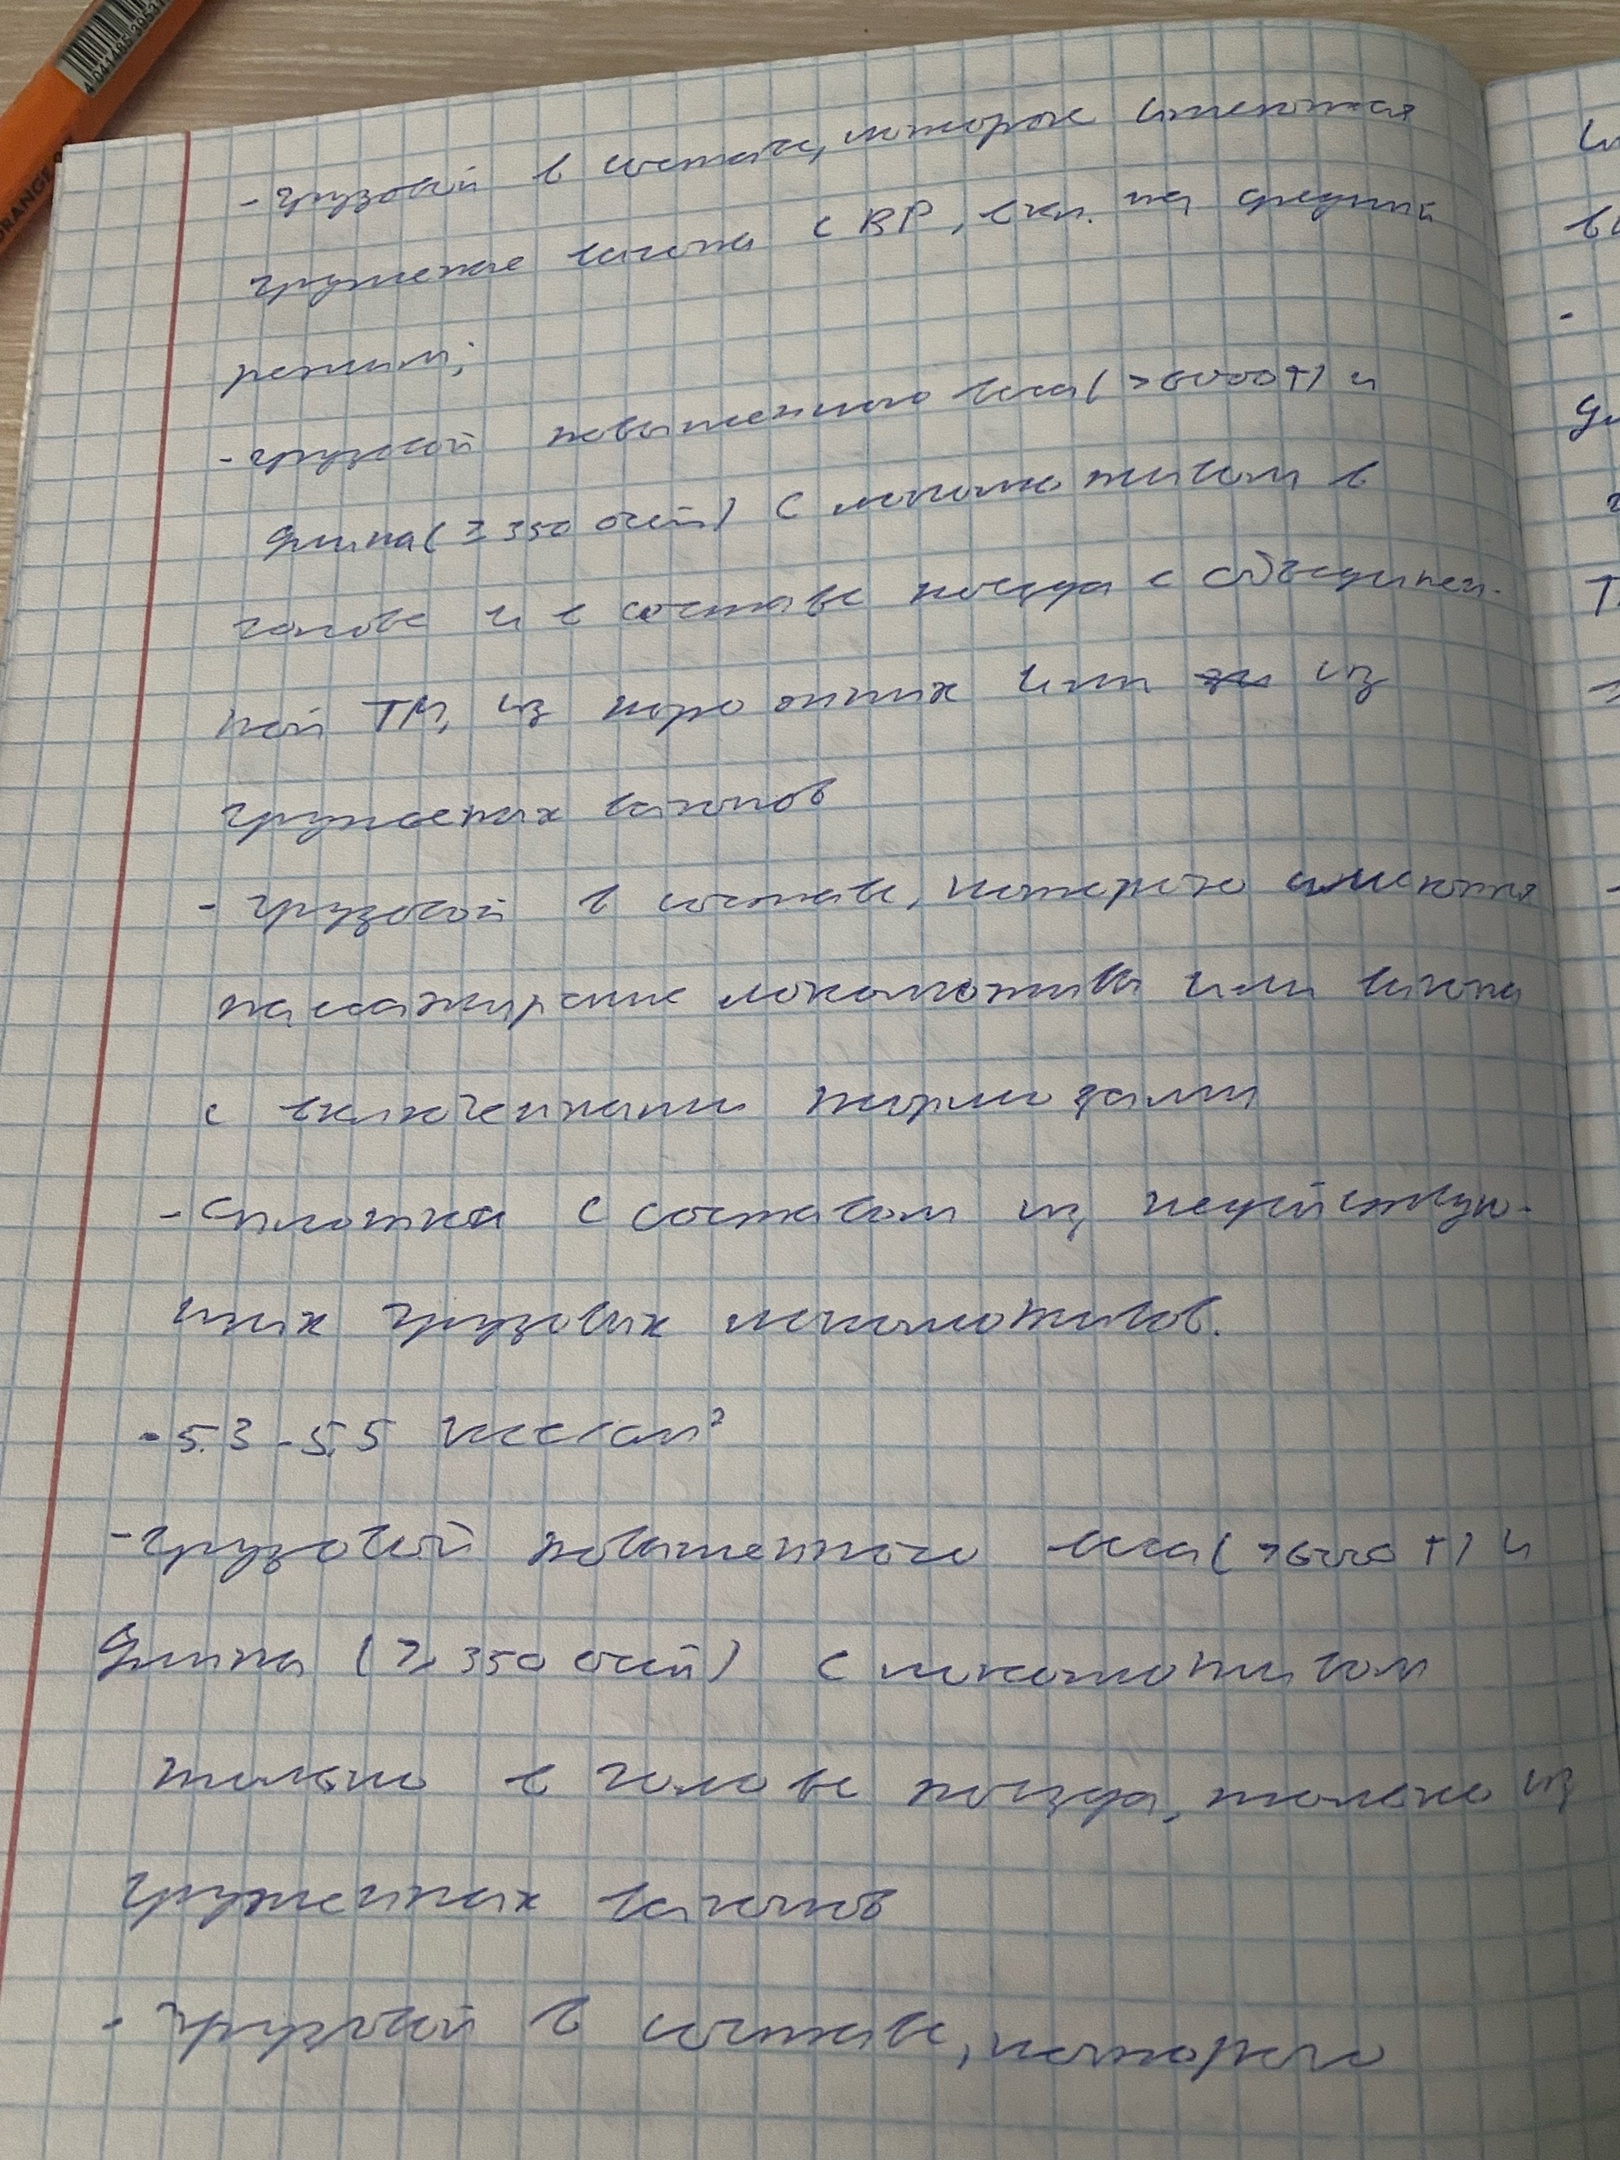 - грузовой в составе, которые имеются
груженые вагоны с ВР, вкл. на средний
режим;
- грузовой повышенного веса (>6000т) и
длина (≥350 осей) с локомотивом в
голове и в составе поезда с объединен-
ной ТМ, из порожних или из
груженых вагонов
- грузовой в составе, которого имеются
пассажирские локомотивы или вагоны
с включенными тормозами
- Сплотка с составом из недействую-
щих грузовых локомотивов.
- 5.3 - 5,5 кгс/см²
- грузовой повышенного веса (>6000 т) и
длина (≥ 350 осей) с локомотивом
только в голове поезда, только из
груженных вагонов
- грузовой в составе, которого
Т
4 041485 3953
ORANGE